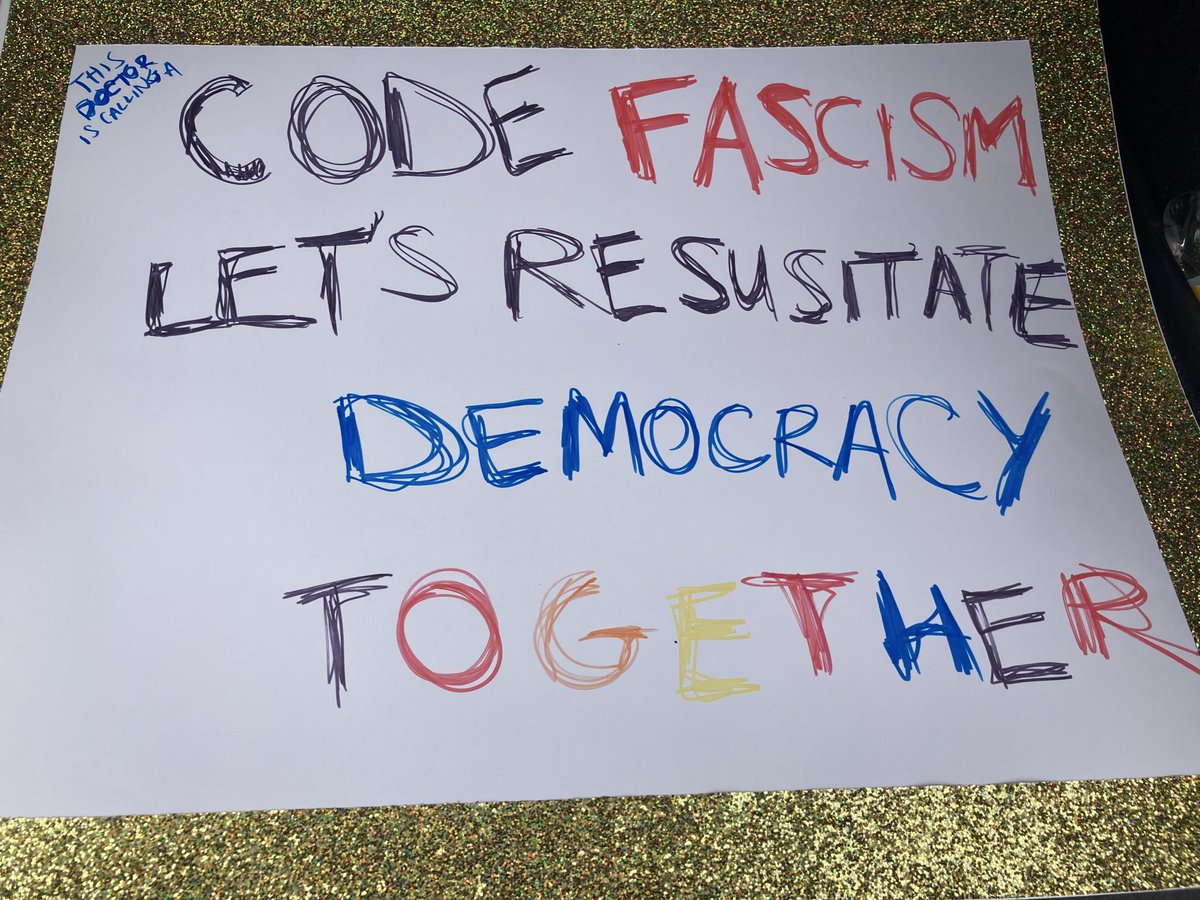 THIS
DOCTOR
IS CALLING A
CODE FASCISM
LET'S RESUSITATE
DEMOCRACY
TOGETHER